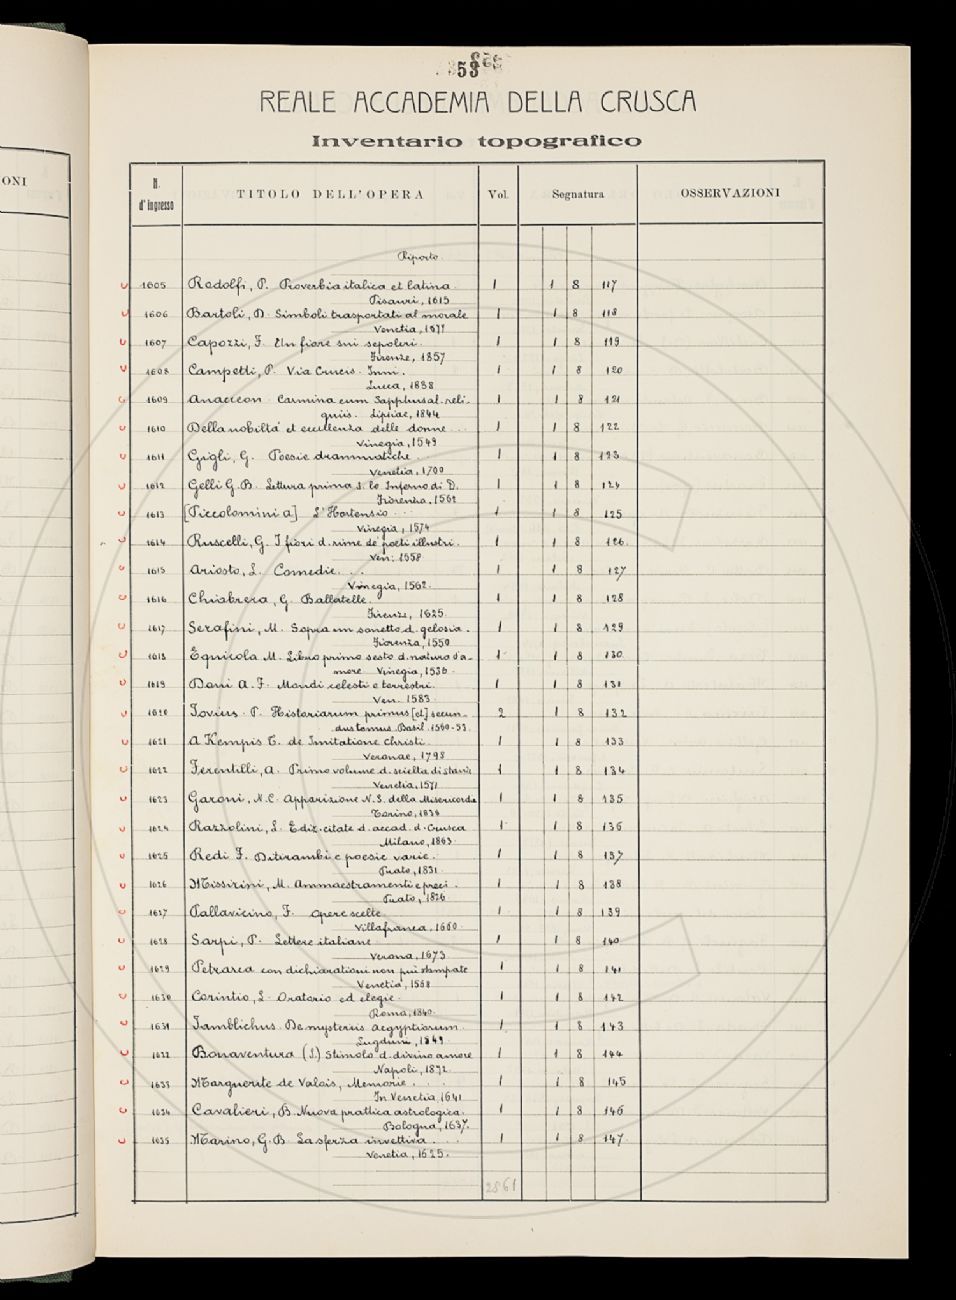 53
REALE ACCADEMIA DELLA CRUSCA
Inventario topografico
ONI
N. d'ingresso TITOLO DELL'OPERA Vol. Segnatura OSSERVAZIONI
Riporto
1605 Rodolfi, P. Proverbia italica et latina. 1 1 8 117
Pisauri, 1615
1606 Bartoli, D. Simboli trasportati al morale 1 1 8 118
Venetia, 1677
1607 Capozzi, F. Un fiore sui sepolcri. 1 1 8 119
Firenze, 1857
1608 Campetti, P. Via Crucis. Inni. 1 1 8 120
Lucca, 1838
1609 Anacreon. Carmina cum Sapphus al. reli- 1 1 8 121
quiis. Lipsiae, 1844
1610 Della nobiltà et eccellenza delle donne... 1 1 8 122
Vinegia, 1549
1611 Gigli, G. Poesie drammatiche. 1 1 8 123
Venetia, 1700
1612 Gelli G. B. Lettura prima s. lo Inferno di D. 1 1 8 124
Fiorenza, 1562
1613 [Piccolomini A] L'Hortensio... 1 1 8 125
Vinegia, 1574
1614 Ruscelli, G. I fiori d. rime de' poeti illustri. 1 1 8 126.
Ven. 1558
1615 Ariosto, L. Comedie... 1 1 8 127
Vinegia, 1562.
1616 Chiabrera, G. Ballatelle. 1 1 8 128
Firenze, 1625.
1617 Serafini, M. Sopra un sonetto d. gelosia. 1 1 8 129
Fiorenza, 1550
1618 Equicola M. Libro primo sesto d. natura d'a- 1 1 8 130
more Vinegia, 1536.
1619 Doni A. F. Mondi celesti e terrestri. 1 1 8 131
Ven. 1583
1620 Jovius. P. Historiarum primus [et] secun- 2 1 8 132
dus tomus. Basil. 1560-53
1621 A Kempis T. de Imitatione Christi. 1 1 8 133
Veronae, 1798
1622 Ferentilli, A. Primo volume d. scielta di stanze 1 1 8 134
Venetia, 1571
1623 Garoni, N. C. Apparizione N. S. della Misericordia 1 1 8 135
Torino, 1838
1624 Razzolini, L. Ediz. citate d. accad. d. Crusca 1 1 8 136
Milano, 1863.
1625 Redi F. Ditirambi e poesie varie. 1 1 8 137
Prato, 1831.
1626 Missirini, M. Ammaestramenti e preci. 1 1 8 138
Prato, 1826
1627 Pallavicino, F. Opere scelte 1 1 8 139
Villafranca, 1660.
1628 Sarpi, P. Lettere italiane 1 1 8 140
Verona, 1673
1629 Petrarca con dichiarationi non più stampate 1 1 8 141
Venetia, 1568
1630 Corintio, L. Oratorio ed elegie. 1 1 8 142
Roma, 1840.
1631 Jamblichus. De mysteriis Aegyptiorum. 1 1 8 143
Lugduni, 1549.
1632 Bonaventura (S.) Stimolo d. divino amore 1 1 8 144
Napoli, 1872.
1633 Marguerite de Valois, Memorie... 1 1 8 145
In Venetia, 1641
1634 Cavalieri, B. Nuova prattica astrologica. 1 1 8 146
Bologna, 1637.
1635 Marino, G. B. La sferza invettiva... 1 1 8 147.
Venetia, 1625.
2861